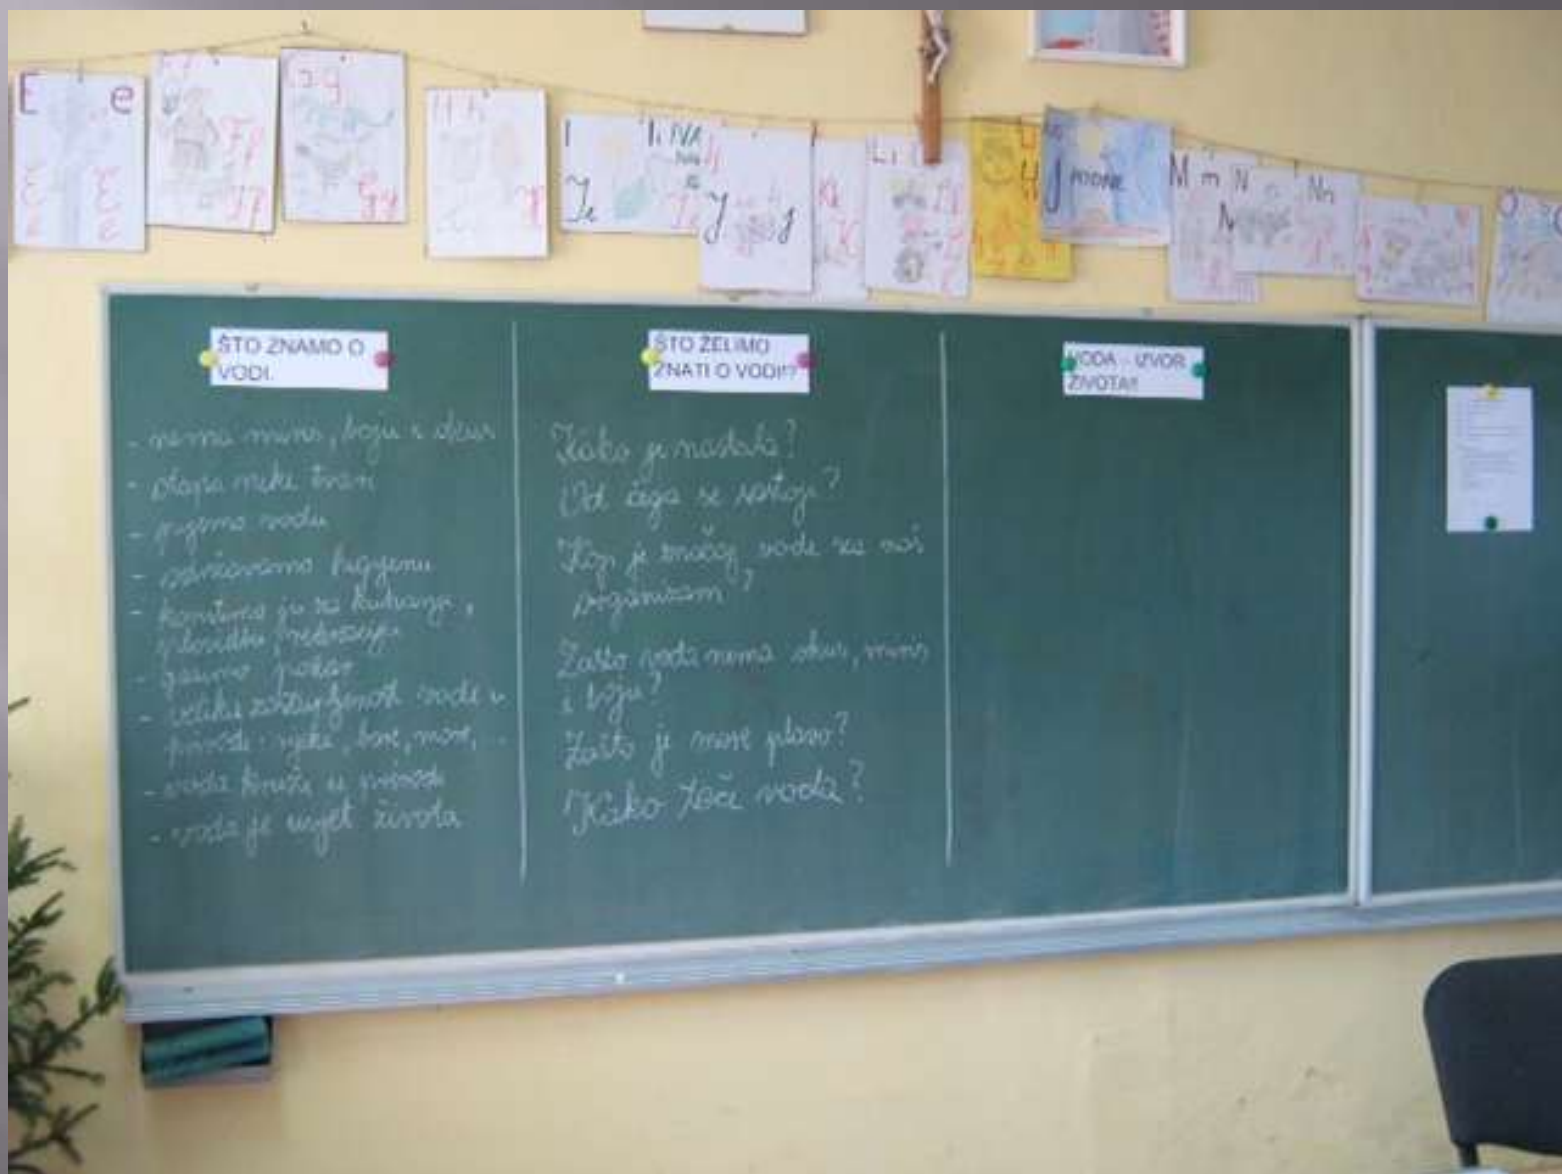 E e
F f
G g
H h
I i IVA
J j
Kk
L l
M m N n Nn
ŠTO ZNAMO O
VODI.
- nema miris, boju i okus
- otapa neke tvari
- pijemo vodu
- održavamo higijenu
- koristimo ju za kuhanje,
- gasimo požar
- velika zastupljenost vode u
prirodi: rijeke, bare, more, ...
- voda kruži u prirodi
- voda je uvjet života
ŠTO ŽELIMO
ZNATI O VODI!?
Kako je nastala?
Od čega se sastoji?
Koji je značaj vode za naš
organizam?
Zašto voda nema okus, miris
i boju?
Zašto je more plavo?
Kako teče voda?
VODA - IZVOR
ŽIVOTA!!